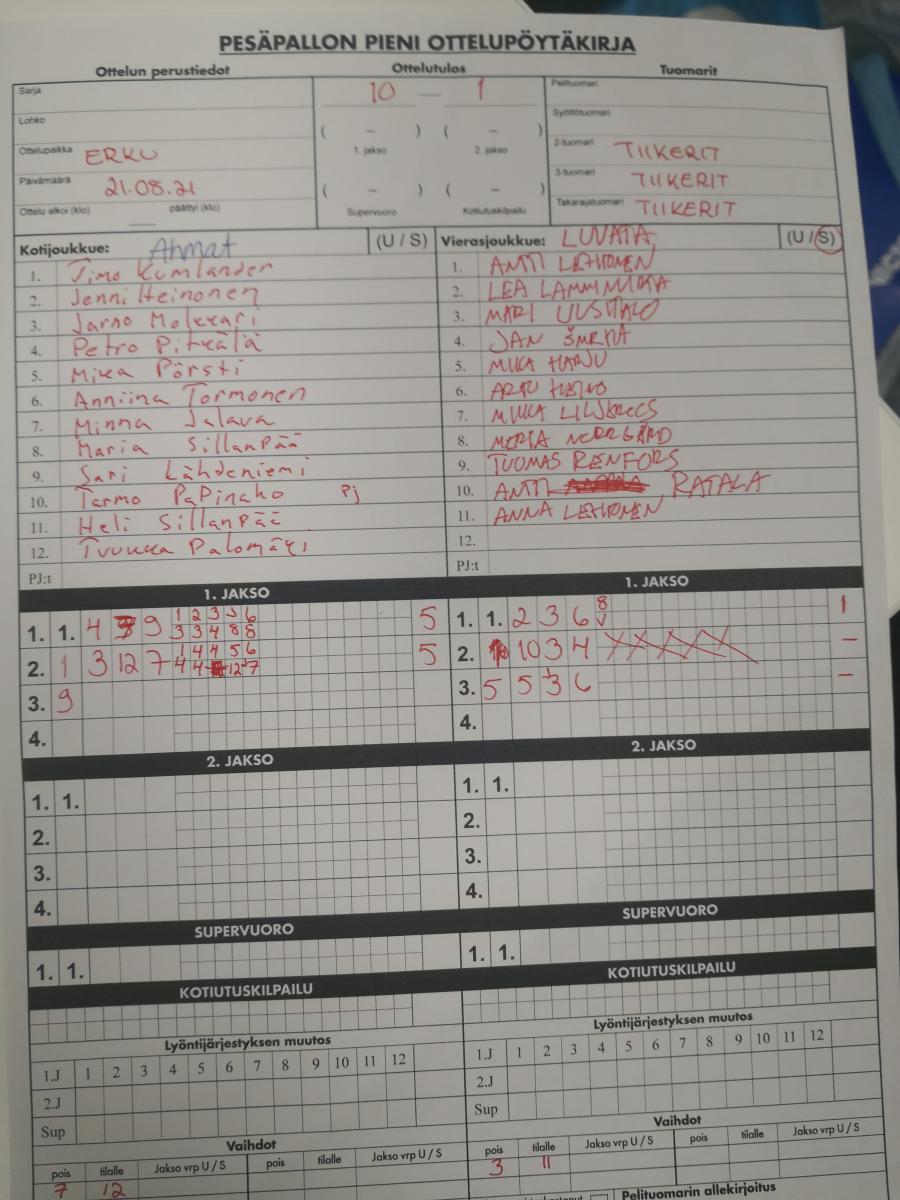 PESÄPALLON PIENI OTTELUPÖYTÄKIRJA
Ottelun perustiedot Ottelutulos Tuomarit
Sarja 10 — 1 Pelituomari
Lohko ( – ) ( – ) Syöttötuomari
Ottelupaikka ERKU 1. jakso 2. jakso 2-tuomari TIIKERIT
Päivämäärä 21.08.21 ( – ) ( – ) 3-tuomari TIIKERIT
Ottelu alkoi (klo) päättyi (klo) Supervuoro Kotiutuskilpailu Takarajatuomari TIIKERIT
Kotijoukkue: Ahmat (U / S) Vierasjoukkue: LUVATA (U / S)
1. Timo Kumlander 1. ANTTI LEHTONEN
2. Jenni Heinonen 2. LEA
3. Jarno 3. MARI UUSITALO
4. Petro Pitkälä 4. JAN
5. Mika Pörsti 5. MIKA HARJU
6. Anniina Tormonen 6.
7. Minna Jalava 7. MIKA
8. Maria Sillanpää 8. MERJA NORRGÅRD
9. Sari Lähdeniemi 9. TUOMAS RENFORS
10. Tarmo Papinaho Pj 10. ANTTI RATALA
11. Heli Sillanpää 11. ANNA LEHTONEN
12. Tuukka Palomäki 12.
PJ:t PJ:t
1. JAKSO 1. JAKSO
1. 1. 4 9 1 2 3 5 6 5 1. 1. 2 3 6 8 1
3 3 4 8 8
2. 1 3 12 7 1 4 4 5 6 5 2. 10 3 4 –
4 4 12 7
3. 9 3. 5 5 3 6 –
4. 4.
2. JAKSO 2. JAKSO
1. 1. 1. 1.
2. 2.
3. 3.
4. 4.
SUPERVUORO SUPERVUORO
1. 1. 1. 1.
KOTIUTUSKILPAILU KOTIUTUSKILPAILU
Lyöntijärjestyksen muutos Lyöntijärjestyksen muutos
1.J 1 2 3 4 5 6 7 8 9 10 11 12 1.J 1 2 3 4 5 6 7 8 9 10 11 12
2.J 2.J
Sup Sup
Vaihdot Vaihdot
pois tilalle Jakso vrp U / S pois tilalle Jakso vrp U / S pois tilalle Jakso vrp U / S pois tilalle Jakso vrp U / S
7 12 3 11
Pelituomarin allekirjoitus